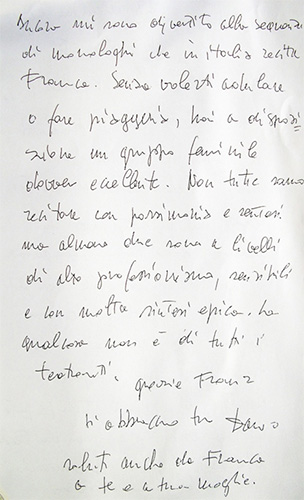 mi sono divertito alla sequenza
di monologhi che in Italia recita
Franca. Senza volerti adulare
o fare piaggeria, hai a disposi
zione un gruppo femminile
davvero eccellente. Non tutte sanno
recitare con
ma almeno due sono a livelli
di alto professionismo, sensibili
e con molta sintesi epica. La
qual cosa non è di tutti i
teatranti. grazie Franz
ti abbraccio tuo Dario
saluti anche da Franca
a te e a tua moglie.